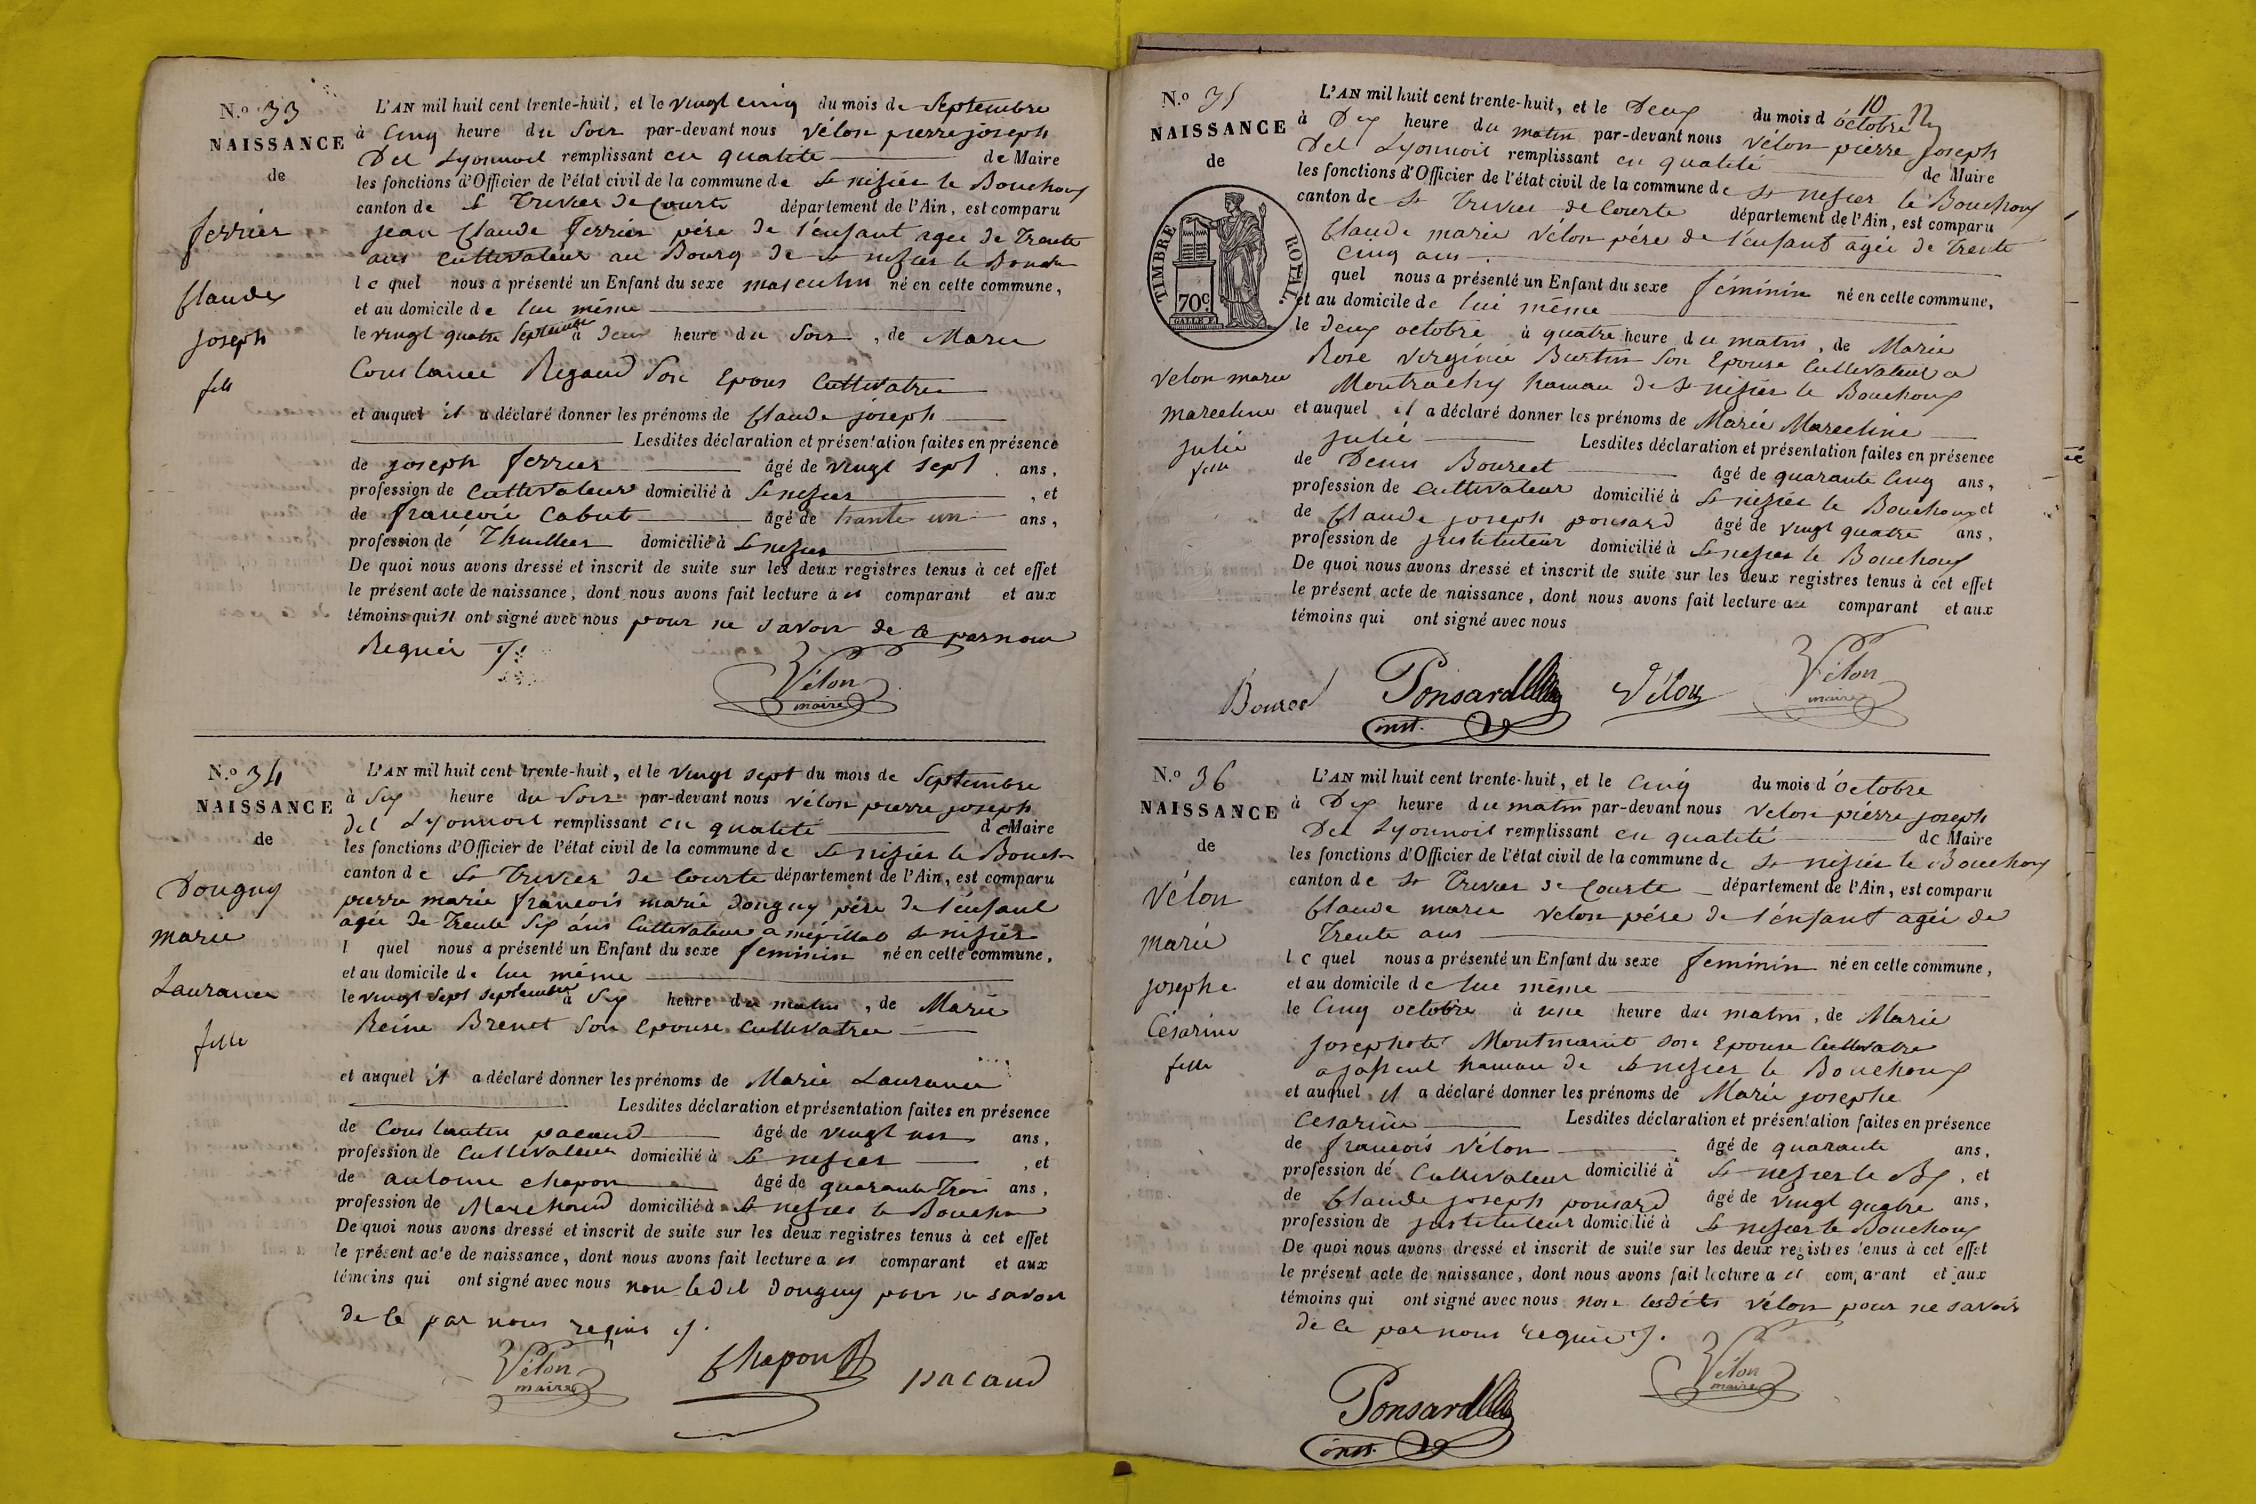 N.o 33
NAISSANCE
de
ferrier
Claude
joseph
fils
L'AN mil huit cent trente-huit, et le vingt cinq du mois de Septembre
à Cinq heure du Soir par-devant nous Vélon pierre joseph
Dit Lyonnois remplissant en qualité de Maire
les fonctions d'Officier de l'état civil de la commune de St nizier le Bouchoux
canton de St Trivier de Courte département de l'Ain, est comparu
jean Claude ferrier pére de l'énfant agée de Trente
ans Cultivateur au Bourg de St nizier le Bouch
le quel nous a présenté un Enfant du sexe masculin né en cette commune,
et au domicile de lui même
le vingt quatre Septembre à deux heure du Soir, de Marie
Constance Rigaud Son Epous Cultivatrice
et auquel il a déclaré donner les prénoms de Claude joseph
Lesdites déclaration et présentation faites en présence
de joseph ferrier âgé de vingt sept ans,
profession de Cultivateur domicilié à St nizier, et
de françois Cabut âgé de trante un ans,
profession de Thuillier domicilié à St nizier
De quoi nous avons dressé et inscrit de suite sur les deux registres tenus à cet effet
le présent acte de naissance, dont nous avons fait lecture à comparant et aux
témoins qui n ont signé avec nous pour ne savoir de ce par nous
Requis
Vélon
maire
N.o 34
NAISSANCE
de
Douguy
marie
Laurance
fille
L'AN mil huit cent trente-huit, et le vingt sept du mois de Septembre
à Six heure du Soir par-devant nous Vélon pierre joseph
dit Lyonnois remplissant en qualité de Maire
les fonctions d'Officier de l'état civil de la commune de St nizier le Bouch
canton de St Trivier de Courte département de l'Ain, est comparu
pierre marie françois marie douguy pére de l'énfant
agée de Trente Six ans Cultivateur a mépillat St nizier
l quel nous a présenté un Enfant du sexe feminin né en cette commune,
et au domicile de lui même
le vingt Sept septembre à Six heure du matin, de Marie
Reine Brenet Son Epouse Cultivatrice
et auquel il a déclaré donner les prénoms de Marie Laurance
Lesdites déclaration et présentation faites en présence
de Constantin pacaud âgé de vingt un ans,
profession de Cultivateur domicilié à St nizier, et
de antoine chapon âgé de quarante Trois ans,
profession de Marchand domicilié à St nizier le Bouchou
De quoi nous avons dressé et inscrit de suite sur les deux registres tenus à cet effet
le présent acte de naissance, dont nous avons fait lecture a comparant et aux
témoins qui ont signé avec nous non ledit Douguy pour ne savoir
de ce par nous requis
Vélon
maire
Chapon
pacaud
N.o 35
NAISSANCE
de
TIMBRE ROYAL.
70c.
Velon marie
mareeline
julie
fille
L'AN mil huit cent trente-huit, et le Deux du mois d'octobre
10
à Dix heure du matin par-devant nous Vélon pierre joseph
Dit Lyonnois remplissant en qualité de Maire
les fonctions d'Officier de l'état civil de la commune de St nizier le Bouchoux
canton de St Trivier de Courte département de l'Ain, est comparu
Claude marie Vélon pére de l'énfant agée de Trente
Cinq ans
quel nous a présenté un Enfant du sexe féminin né en cette commune,
et au domicile de lui même
le deux octobre à quatre heure du matin, de Marie
Rose Virginie Burtin Son Epouse Cultivateur a
Montrachy hamau de St nizier le Bouchoux
et auquel il a déclaré donner les prénoms de Marie Mareeline
julie Lesdites déclaration et présentation faites en présence
de Denis Bourcet âgé de quarante Cinq ans,
profession de Cultivateur domicilié à St nizier le Bouchoux et
de Claude joseph ponsard âgé de vingt quatre ans,
profession de justituteur domicilié à St nizier le Bouchoux
De quoi nous avons dressé et inscrit de suite sur les deux registres tenus à cet effet
le présent acte de naissance, dont nous avons fait lecture au comparant et aux
témoins qui ont signé avec nous
Bourcet
Ponsard
inst.
Vélon
Vélon
maire
N.o 36
NAISSANCE
de
Vélon
marie
josephe
Césarine
fille
L'AN mil huit cent trente-huit, et le Cinq du mois d'octobre
à Dix heure du matin par-devant nous Velon piérre joseph
Dit Lyonnois remplissant en qualité de Maire
les fonctions d'Officier de l'état civil de la commune de St nizier le Bouchoux
canton de St Trivier de Courte département de l'Ain, est comparu
Claude marie Velon pére de l'énfant agée de
Trente ans
le quel nous a présenté un Enfant du sexe feminin né en cette commune,
et au domicile de lui même
le Cinq octobre à une heure du matin, de Marie
josephete Montmain son Epouse Cultivatre
hamau de St nizier le Bouchoux
et auquel il a déclaré donner les prénoms de Marie josephe
Cesarine Lesdites déclaration et présentation faites en présence
de françois Vélon âgé de quarante ans,
profession de Cultivateur domicilié à St nizier le Bx, et
de Claude joseph ponsard âgé de vingt quatre ans,
profession de justituteur domicilié à St nizier le Bouchoux
De quoi nous avons dressé et inscrit de suite sur les deux registres tenus à cet effet
le présent acte de naissance, dont nous avons fait lecture a comparant et aux
témoins qui ont signé avec nous non lesdits Vélon pour ne savoir
de ce par nous requis
Ponsard
inst.
Vélon
maire